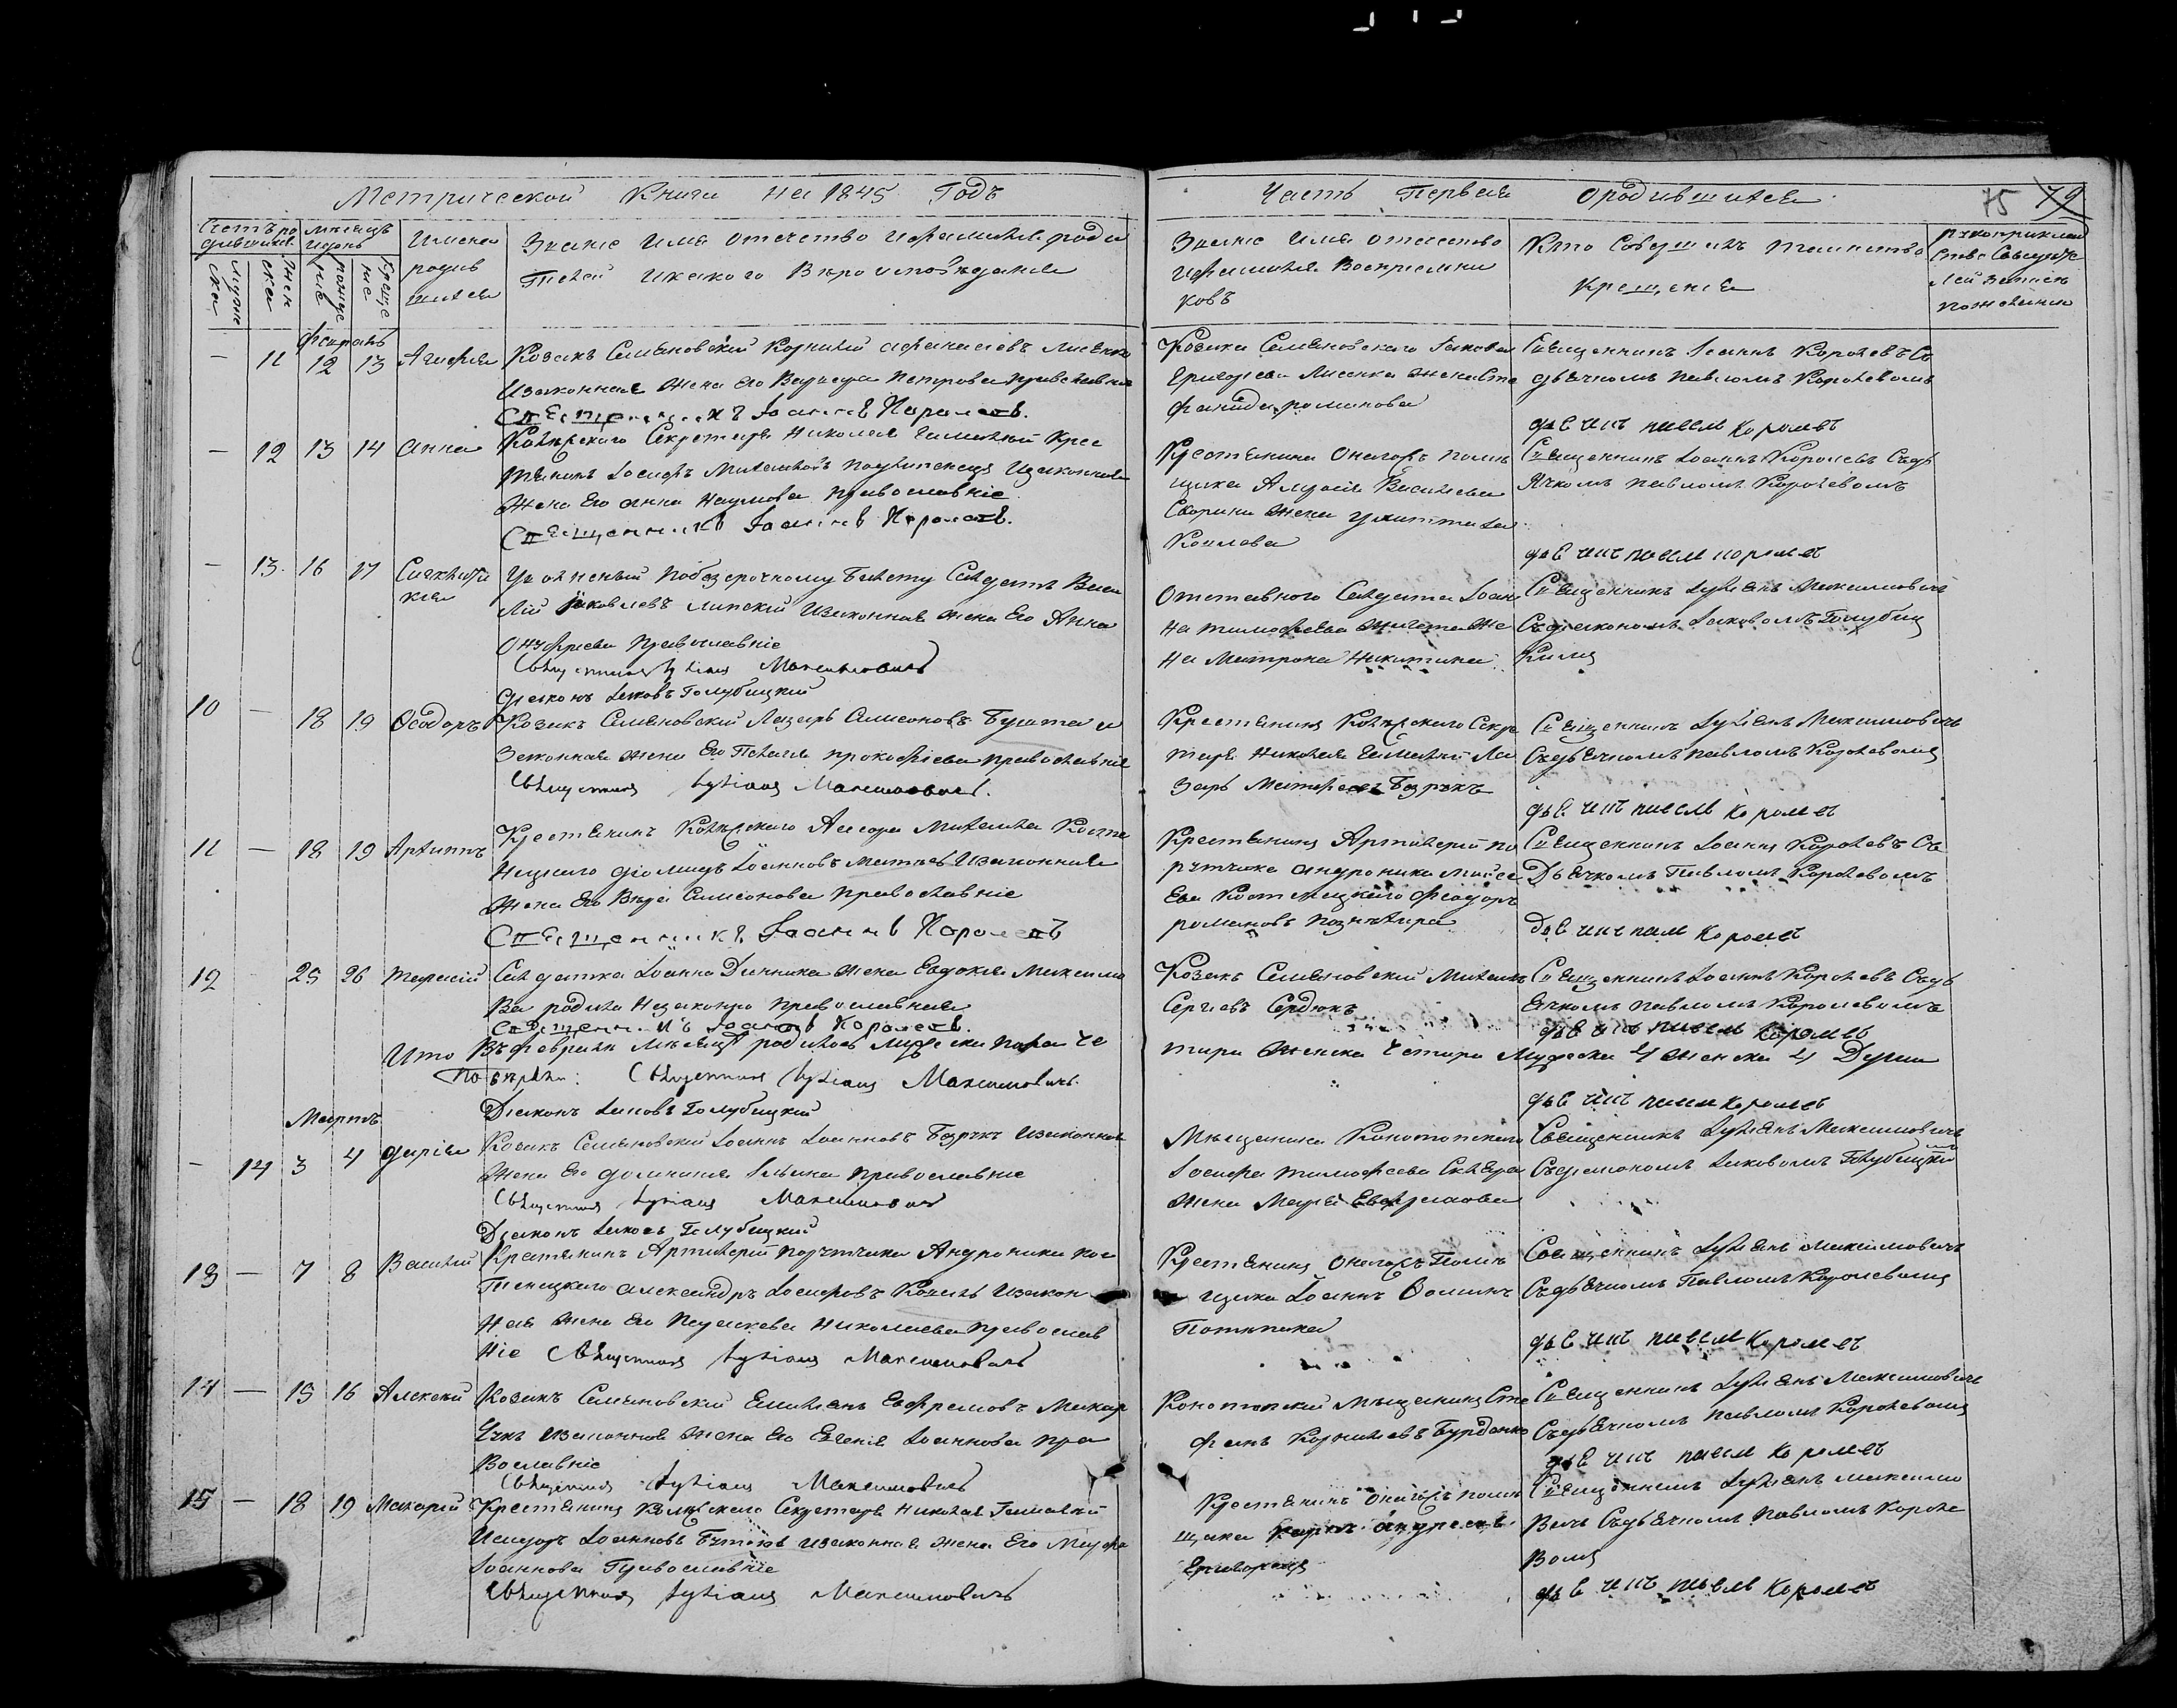 Метрической Книги на 1845 Годъ
Часть Первая О родившихся
75 79
Счетъ ро
дившихся
Муже
ска
Жен
ска
Мѣсяцъ
и день
рожде
ніе
Креще
ніе
Имена
родив
шихся
Званіе Имя Отечество и фамилія роди
телей и какого Вѣроисповѣданія
Званіе Имя Отечество
и фамилія Воспріемни
ковъ
Кто Совершалъ таинство
Крещенія
Рукоприклад
ство Свидѣте
лей записи
по желанію
— 11 12 13 Агафія
Козакъ Семяновскій Корнилій Афанасіевъ Лисенко
Изаконная Жена Его Варвара Петрова православніе
Священникъ Іоаннъ Королевъ.
Козака Семяновского Іякова
Григоріева Лисенка жена Сте
фанида романова
Священникъ Іоаннъ Королевъ Съ
дьячкомъ Павломъ Королевомъ
дьячикъ павелъ королевъ
— 12 13 14 Анна
Секретаря Николая Крес
тянинъ Іосифъ Михайловъ Изаконная
Жена Его Анна Наумова православніе
Священникъ Іоаннъ Королевъ.
Крестянина Онагоръ помѣ
щика Алексія Васильева
Жена
Священникъ Іоаннъ Королевъ Съдь
ячкомъ павломъ Королевомъ
дьячикъ павелъ королевъ
— 13 16 17
Уволненый по безсрочному билету Салдатъ Васи
лій Яковлевъ Липскій Изаконная жена Его Анна
Онуфріева Православніе
Священникъ Лукіанъ Максимовичъ
Діяконъ Іяковъ Голубицкій
Отставного Салдата Іоан
на тимофѣева же
на Матрона Никитина
Священникъ Лукіянъ Максимовичъ
Съдіякономъ Іяковомъ Голубиц
кимъ
10 — 18 19 Ѳеодоръ
Козакъ Семяновскій Лазарь Симеоновъ
Законная жена Его Пелагія прокофіева православніе
Священникъ Лукіанъ Максимовичъ.
Крестянинъ Секре
таря Николая Ла
зарь Матфеевъ Бурякъ
Священникъ Лукіянъ Максимовичъ
Съдьячкомъ павломъ Королевомъ
дьячикъ павелъ королевъ
11 — 18 19 Архиппъ
Крестянинъ Асесора Михаила Косте
нецкого Діомидъ Іоанновъ Изаконная
Жена Его Вѣра Симеонова православніе
Священникъ Іоаннъ Королевъ
Крестянинъ Артилеріи по
рутчика Андроника
Костенецкого Феодоръ
романовъ
Священникъ Іоаннъ Королевъ Съ
Дьячкомъ Павломъ Королевомъ
дьячикъ павелъ королевъ
12 25 26 Тарасій
Салдатка Іоанна жена Евдокія Максимо
ва родила Незаконно православная
Священникъ Іоаннъ Королевъ.
Козакъ Семяновскій Михаилъ
Сергіевъ Сердюкъ
Священникъ Іоаннъ Королевъ Съдь
ячкомъ павломъ Королевомъ
дьячикъ павелъ королевъ
Итого Въ февралѣ Мѣсяцѣ родилось Мужеска пола че
тири Женска Четири Мужеска 4 Женска 4 Души
Священникъ Лукіанъ Максимовичъ
Діяконъ Іяковъ Голубицкій
дьячикъ павелъ королевъ
Мартъ
— 14 3 4 Дарія
Козакъ Семяновскій Іоаннъ Іоанновъ Бурякъ Изаконная
Жена Его Домникія Ильина православніе
Священникъ Лукіанъ Максимовичъ
Діяконъ Іяковъ Голубицкій
Мѣщанина Конотопского
Іосифа тимофеева
жена Марія Евфремова
Священникъ Лукіянъ Максимовичъ
Съдіякономъ Іяковомъ Голубицкимъ
13 — 7 8 Василій
Крестянинъ Артилеріи порутчика Андроника Кос
тенецкого Александръ Іосифовъ Изакон
ная жена Его Параскева Николаева православ
ніе Священникъ Лукіанъ Максимовичъ
Крестянинъ Онагоръ Помѣ
щика Іоаннъ Фоминъ
Священникъ Лукіянъ Максимовичъ
Съдьячкомъ Павломъ Королевомъ
дьячикъ павелъ королевъ
14 — 15 16 Алексій
Козакъ Семяновскій Емиліянъ Евфремовъ
Изаконная жена Его Евгенія Іоаннова пра
вославніе
Священникъ Лукіанъ Максимовичъ
Конотопскій мѣщанинъ Сте
фанъ Корнилієвъ Бурденко
Священникъ Лукіянъ Максимовичъ
Съдьячкомъ павломъ Королевомъ
дьячикъ павелъ королевъ
15 — 18 19 Макарій
Крестянинъ Секретаря Николая
Исидоръ Іоанновъ изаконная жена Его Марфа
Іоаннова Православніе
Священникъ Лукіанъ Максимовичъ
Крестянинъ Онагоръ помѣ
щика Карпъ Андреевъ
Священникъ Лукіянъ Максимо
вичъ Съдьячкомъ Павломъ Короле
вомъ
дьячикъ павелъ королевъ